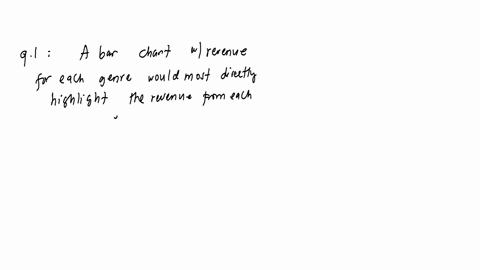 q.1 : A bar chart w/ revenue
for each genre would most directly
highlight the revenue from each